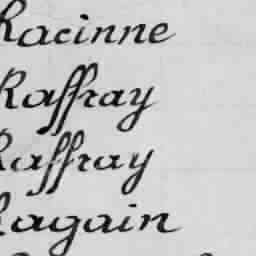 Racinne
Raffray
Raffray
Ragain